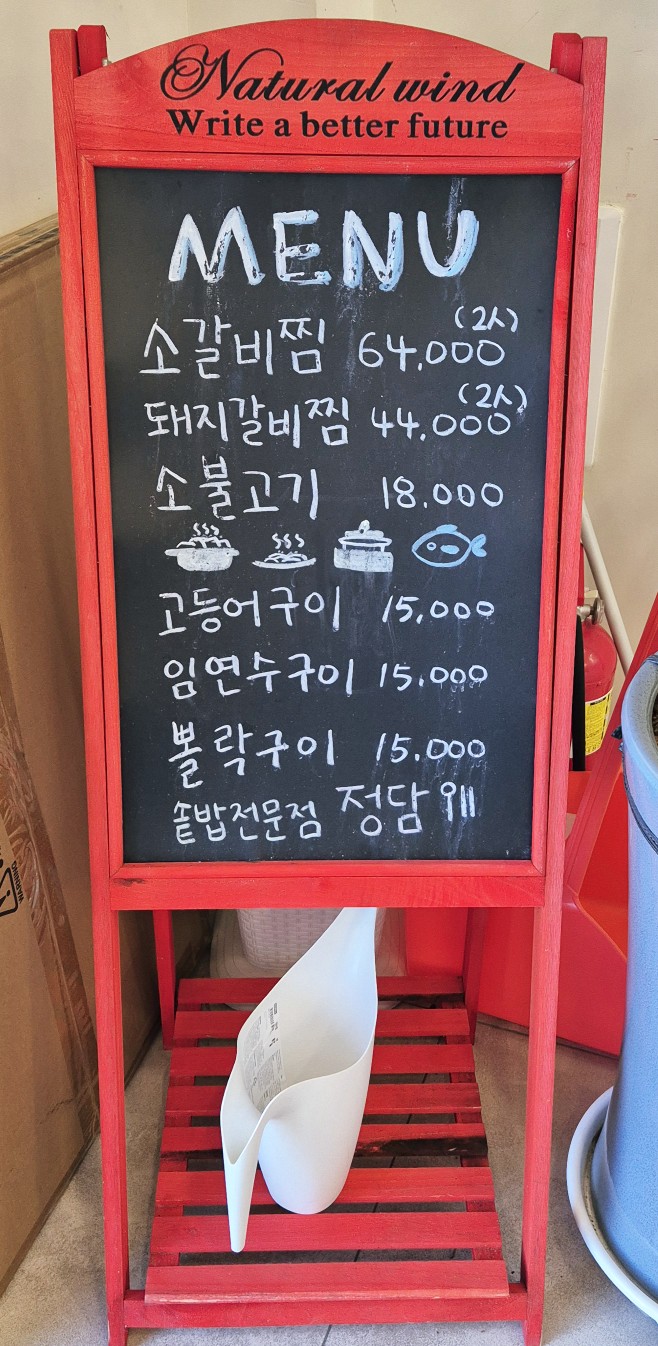 Natural wind
Write a better future
MENU
(2人)
소갈비찜 64,000
(2人)
돼지갈비찜 44,000
소불고기 18,000
고등어구이 15,000
임연수구이 15,000
뽈락구이 15,000
솥밥전문점 정담
WARNING